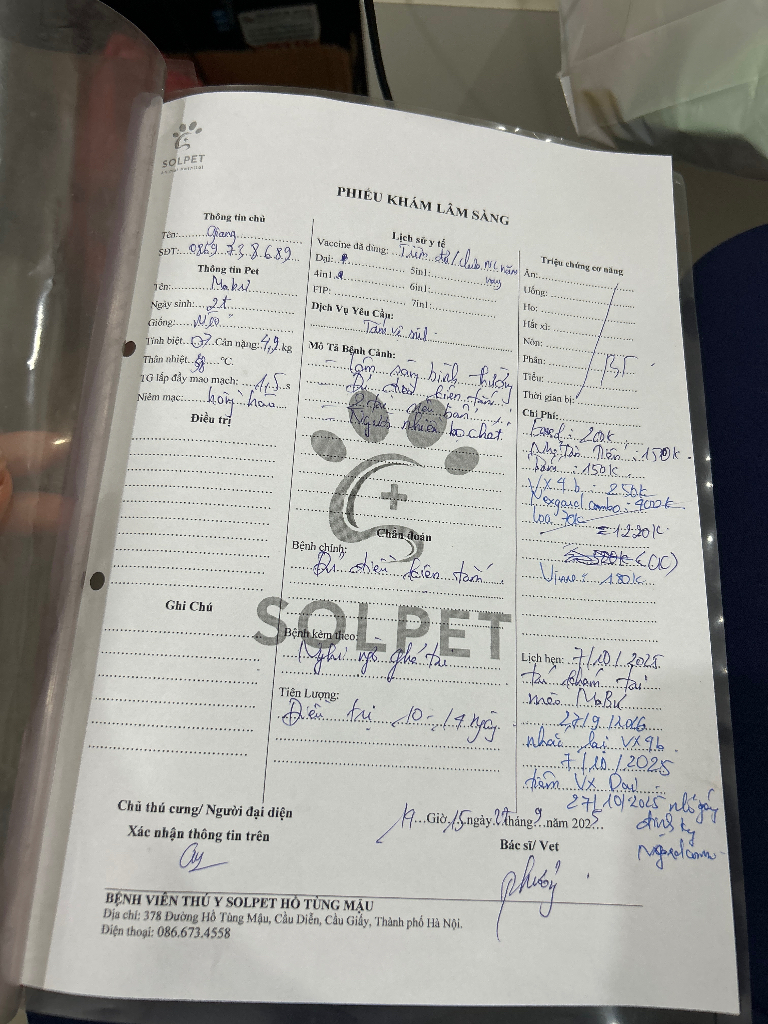 SOLPET
PHIẾU KHÁM LÂM SÀNG
Thông tin chủ
Tên: Giang
SĐT: 0869.738.689
Thông tin Pet
Tên: Mabư
Ngày sinh: 2t
Giống: Mèo
Tính biệt: Cân nặng: 4,2 kg
Thân nhiệt: °C.
TG lấp đầy mao mạch: 1,5 s
Niêm mạc: hồng hào
Điều trị
Ghi Chú
Lịch sử y tế
Vaccine đã dùng:
Dại:
5in1:
4in1:
6in1:
FIP:
7in1:
Dịch Vụ Yêu Cầu:
Tắm vệ sinh
Mô Tả Bệnh Cảnh:
- Lâm sàng bình thường
Chẩn đoán
Bệnh chính:
Bệnh kèm theo:
Nghi ngờ ghẻ tai
Tiên Lượng:
Điều trị 10-14 ngày
SOLPET
Triệu chứng cơ năng
Ăn:
Uống:
Ho:
Hắt xì:
Nôn:
Phân:
Tiểu:
BT
Thời gian bị:
Chi Phí:
: 200k
: 150k
Tắm: 150k
VX 4b: 250k
Nexgard combo: 400k
Loa 70k
= 1220k
(CK)
: 180k
Lịch hẹn: 7/10/2025
tái khám tai
mèo MaBư
27/9/2026
nhắc lại VX 4b
7/10/2025
tiêm VX Dại
27/10/2025 nhỏ gáy
định kỳ
Chủ thú cưng/ Người đại diện
Xác nhận thông tin trên
19 Giờ 15 ngày 27 tháng 9 năm 2025
Bác sĩ/ Vet
BỆNH VIỆN THÚ Y SOLPET HỒ TÙNG MẬU
Địa chỉ: 378 Đường Hồ Tùng Mậu, Cầu Diễn, Cầu Giấy, Thành phố Hà Nội.
Điện thoại: 086.673.4558